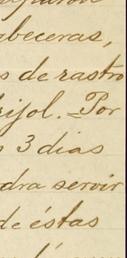 abeceras,
s de rastro
rijol. Por
s 3 dias
dra servir
de éstas